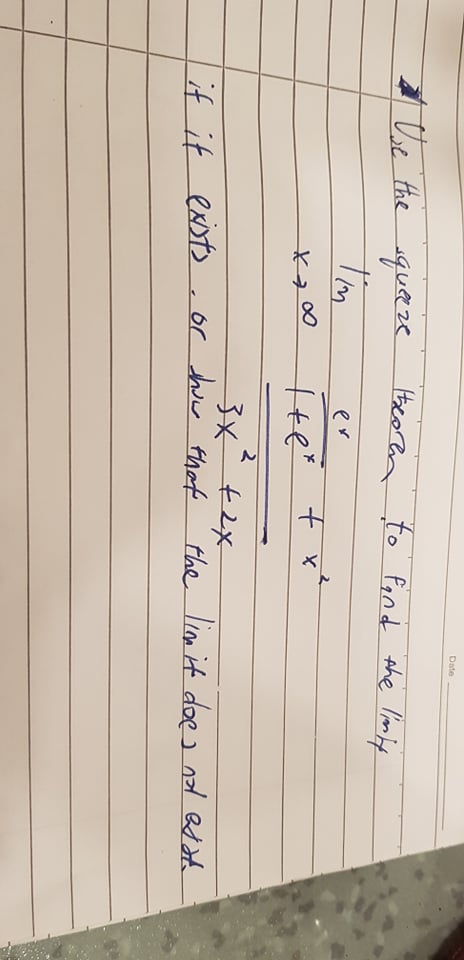 Date
Use the squeeze theorem to find the limit
lim e^x
x→∞ 1+e^x + x^2
3x^2 + 2x
if it exists. or show that the limit does not exist.